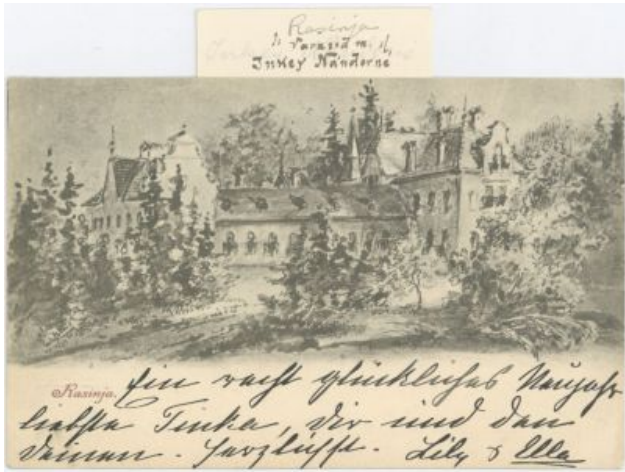 Rasinja
Varasd m.
Inkey Nándorné
Rasinja.
Ein recht glückliches Neujahr
liebste Tinka, dir und den
Deinen. Herzlichst. Lily & Ella